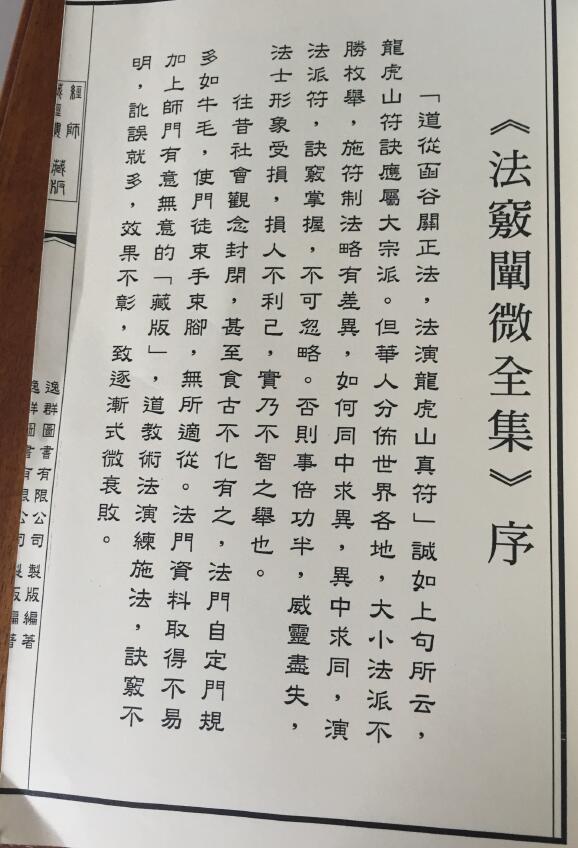 《法竅闡微全集》序
「道從函谷關正法，法演龍虎山真符」誠如上句所云，
龍虎山符訣應屬大宗派。但華人分佈世界各地，大小法派不
勝枚舉，施符制法略有差異，如何同中求異，異中求同，演
法派符，訣竅掌握，不可忽略。否則事倍功半，威靈盡失，
法士形象受損，損人不利己，實乃不智之舉也。
往昔社會觀念封閉，甚至食古不化有之，法門自定門規
多如牛毛，使門徒束手束腳，無所適從。法門資料取得不易
加上師門有意無意的「藏版」，道教術法演練施法，訣竅不
明，訛誤就多，效果不彰，致逐漸式微衰敗。
經師藏版
逸群圖書有限公司 製版編著
逸群圖書有限公司 製版編著